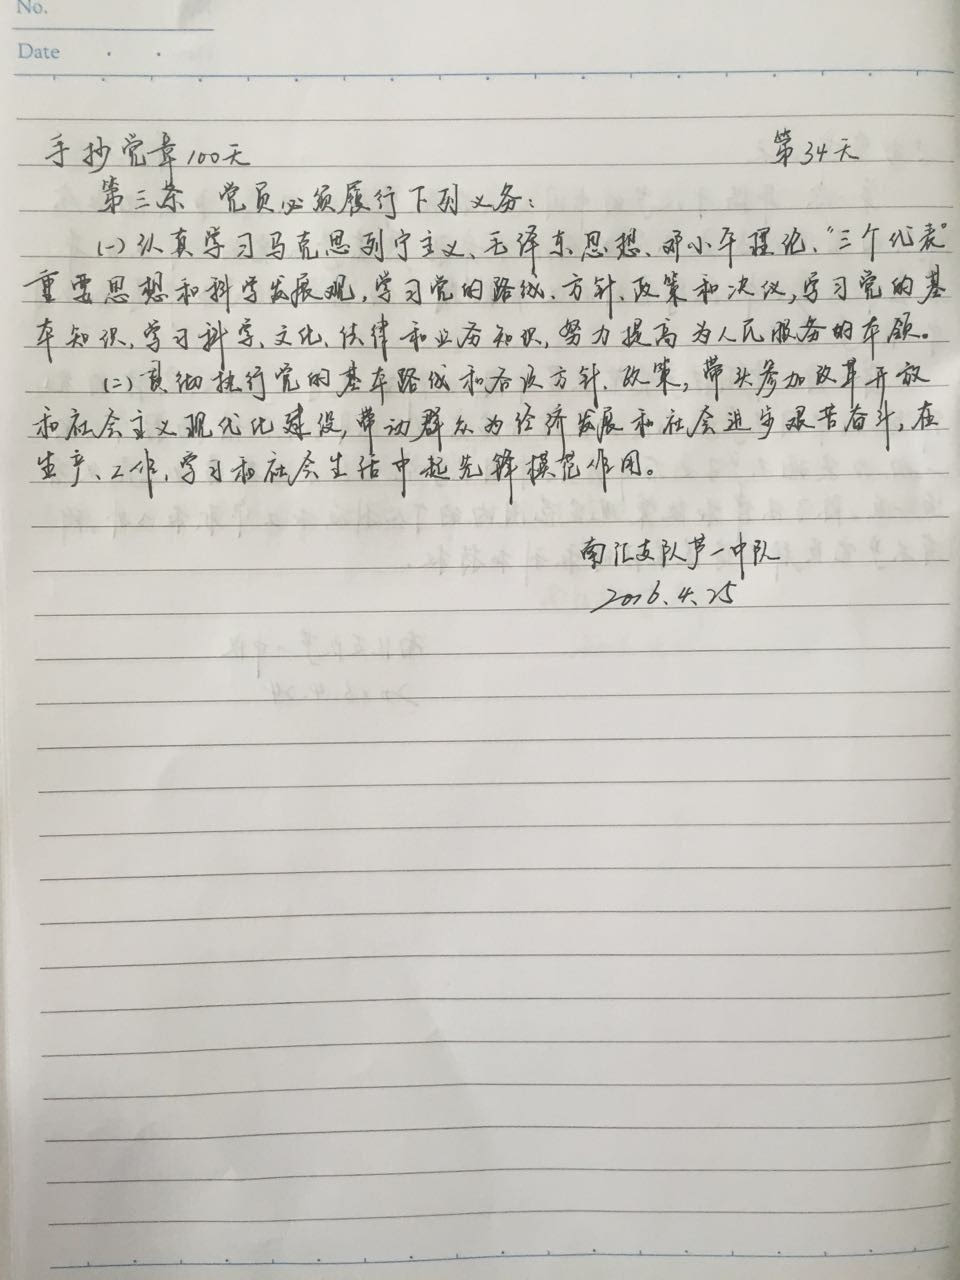 No.
Date
手抄党章100天 第34天
第三条 党员必须履行下列义务:
(一)认真学习马克思列宁主义、毛泽东思想、邓小平理论、“三个代表”
重要思想和科学发展观,学习党的路线、方针、政策和决议,学习党的基
本知识,学习科学、文化、法律和业务知识,努力提高为人民服务的本领。
(二)贯彻执行党的基本路线和各项方针、政策,带头参加改革开放
和社会主义现代化建设,带动群众为经济发展和社会进步艰苦奋斗,在
生产、工作、学习和社会生活中起先锋模范作用。
南汇支队芦一中队
2016.4.25